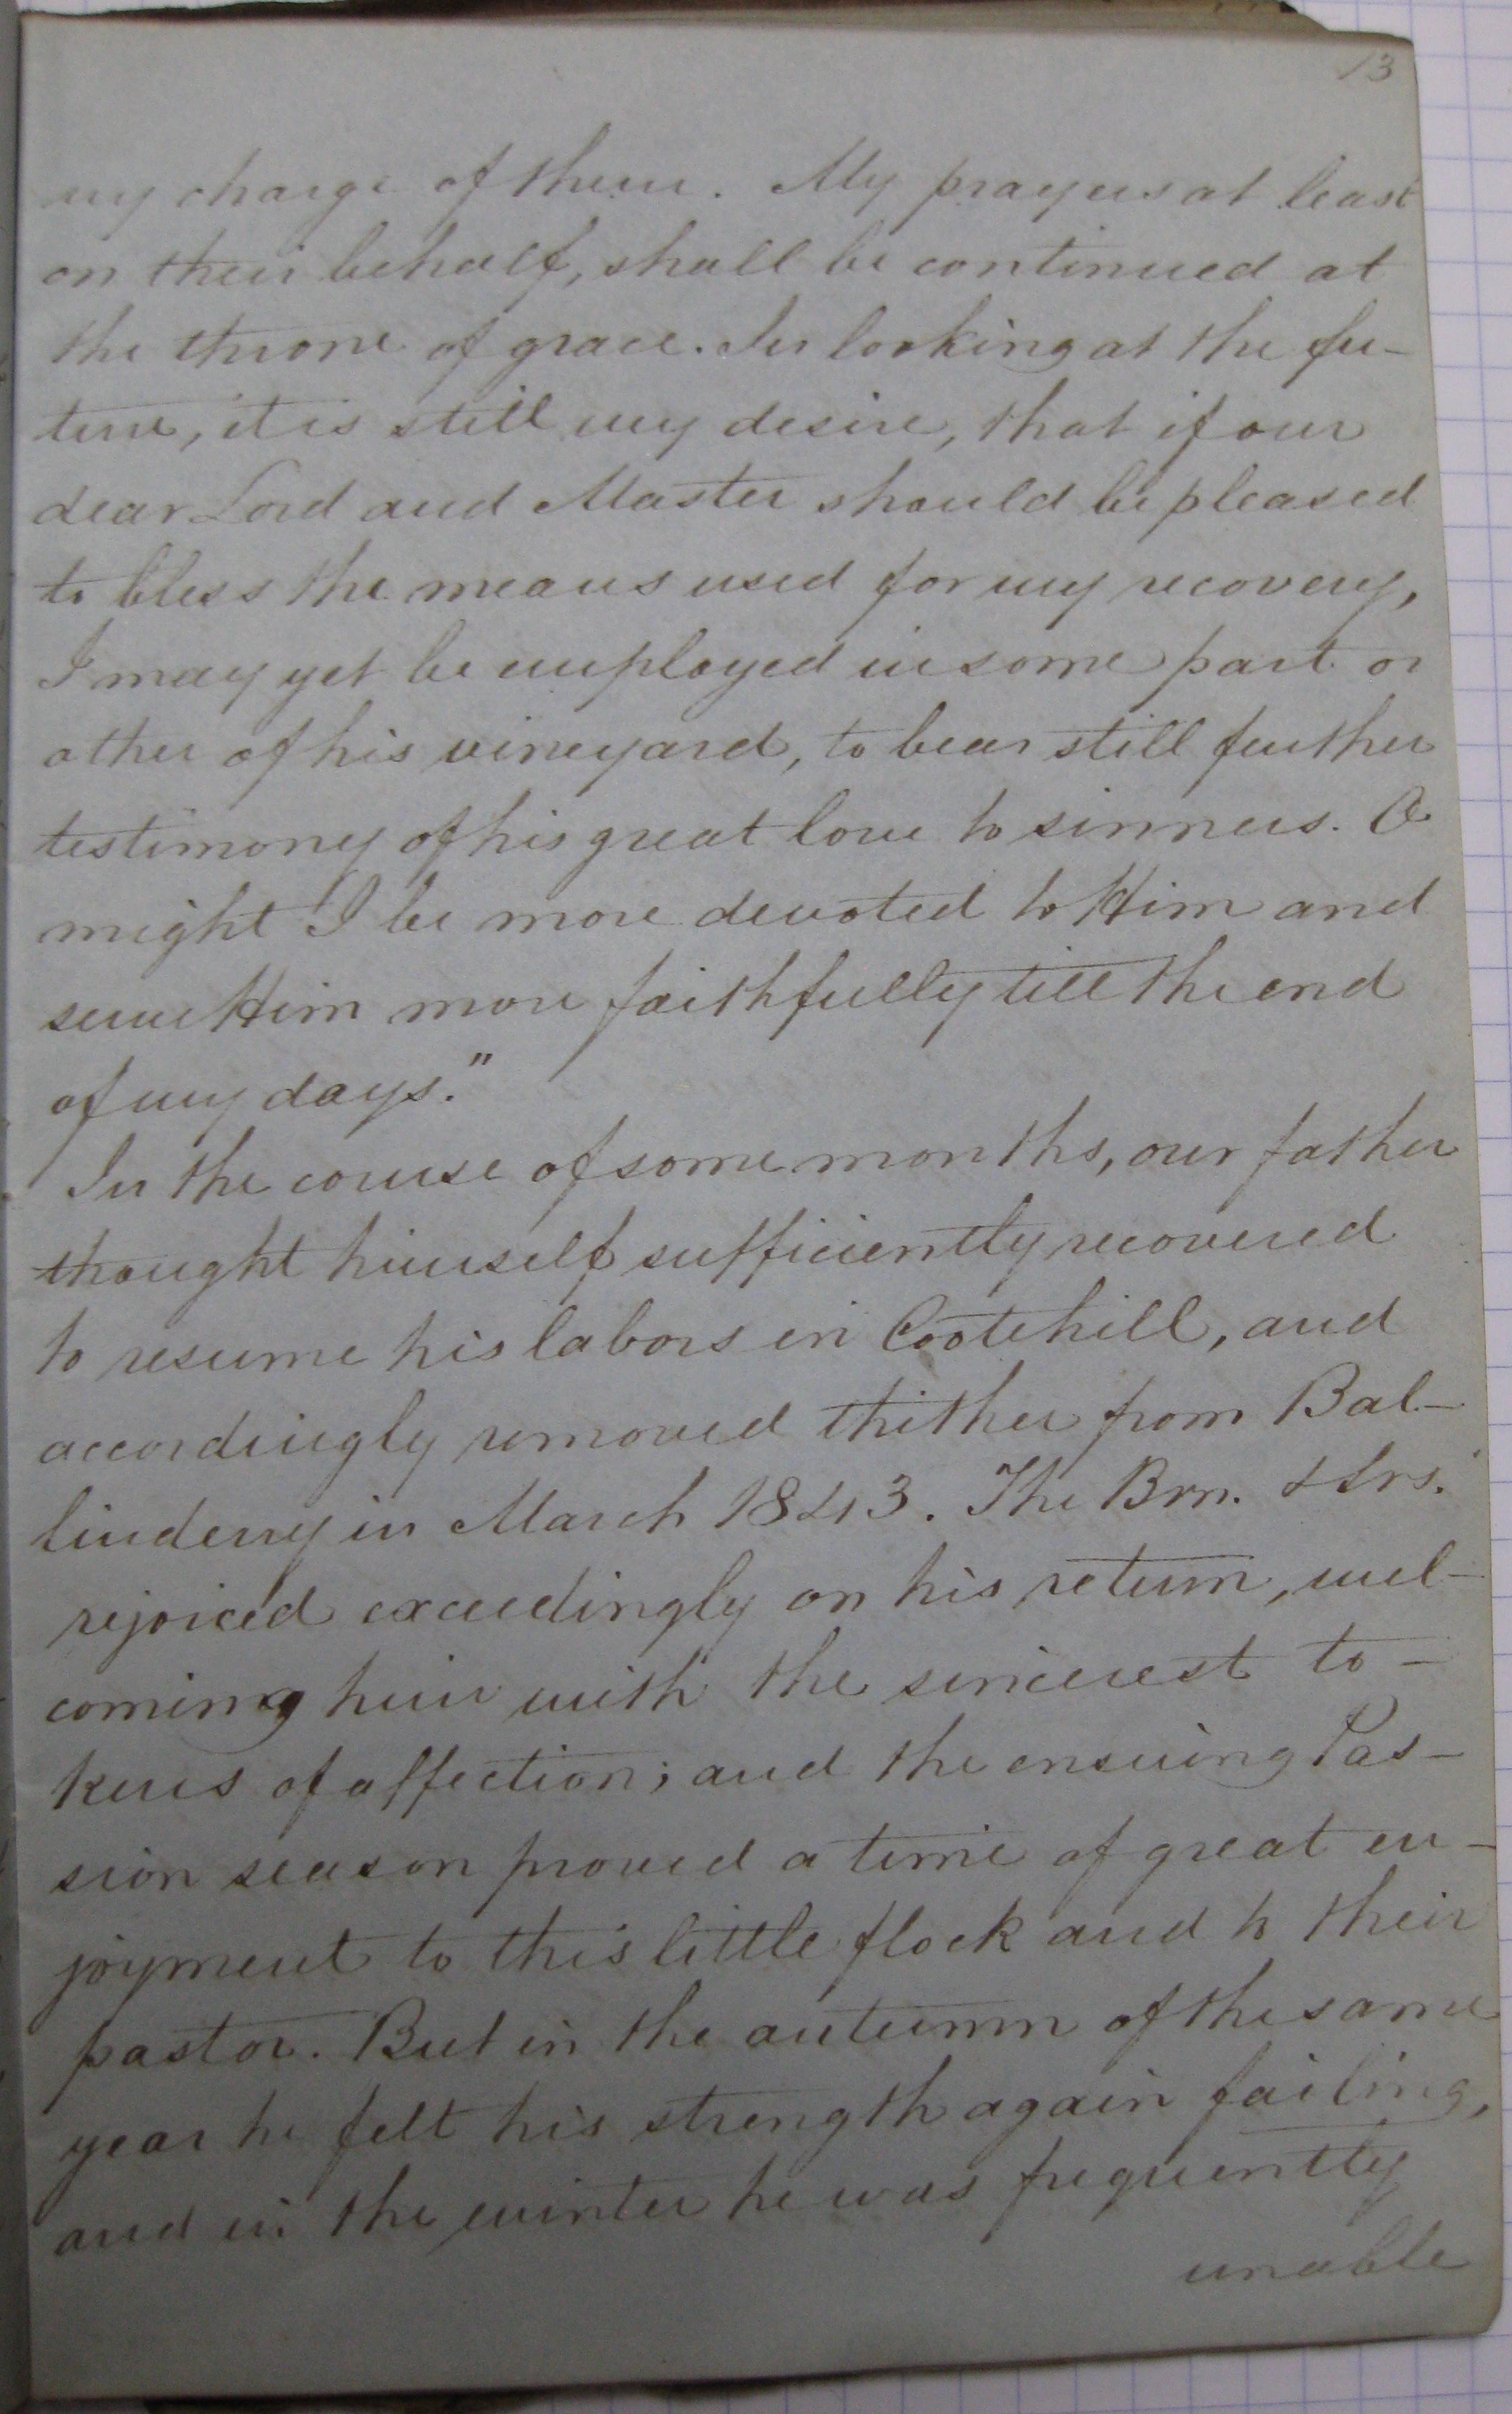 13
my charge of them. My prayers at least
on their behalf, shall be continued at
the throne of grace. In looking at the fu-
ture, it is still my desire, that if our
dear Lord and Master should be pleased
to bless the means used for my recovery,
I may yet be employed in some part or
other of his vineyard, to bear still further
testimony of his great love to sinners. O
might I be more devoted to Him and
serve Him more faithfully till the end
of my days."
In the course of some months, our father
thought himself sufficiently recovered
to resume his labors in Cootehill, and
accordingly removed thither from Bal-
linderry in March 1843. The Brn. & Srs.
rejoiced exceedingly on his return, wel-
coming him with the sincerest to-
kens of affection; and the ensuing Pas-
sion season proved a time of great en-
joyment to this little flock and to their
pastor. But in the autumn of the same
year he felt his strength again failing,
and in the winter he was frequently
unable